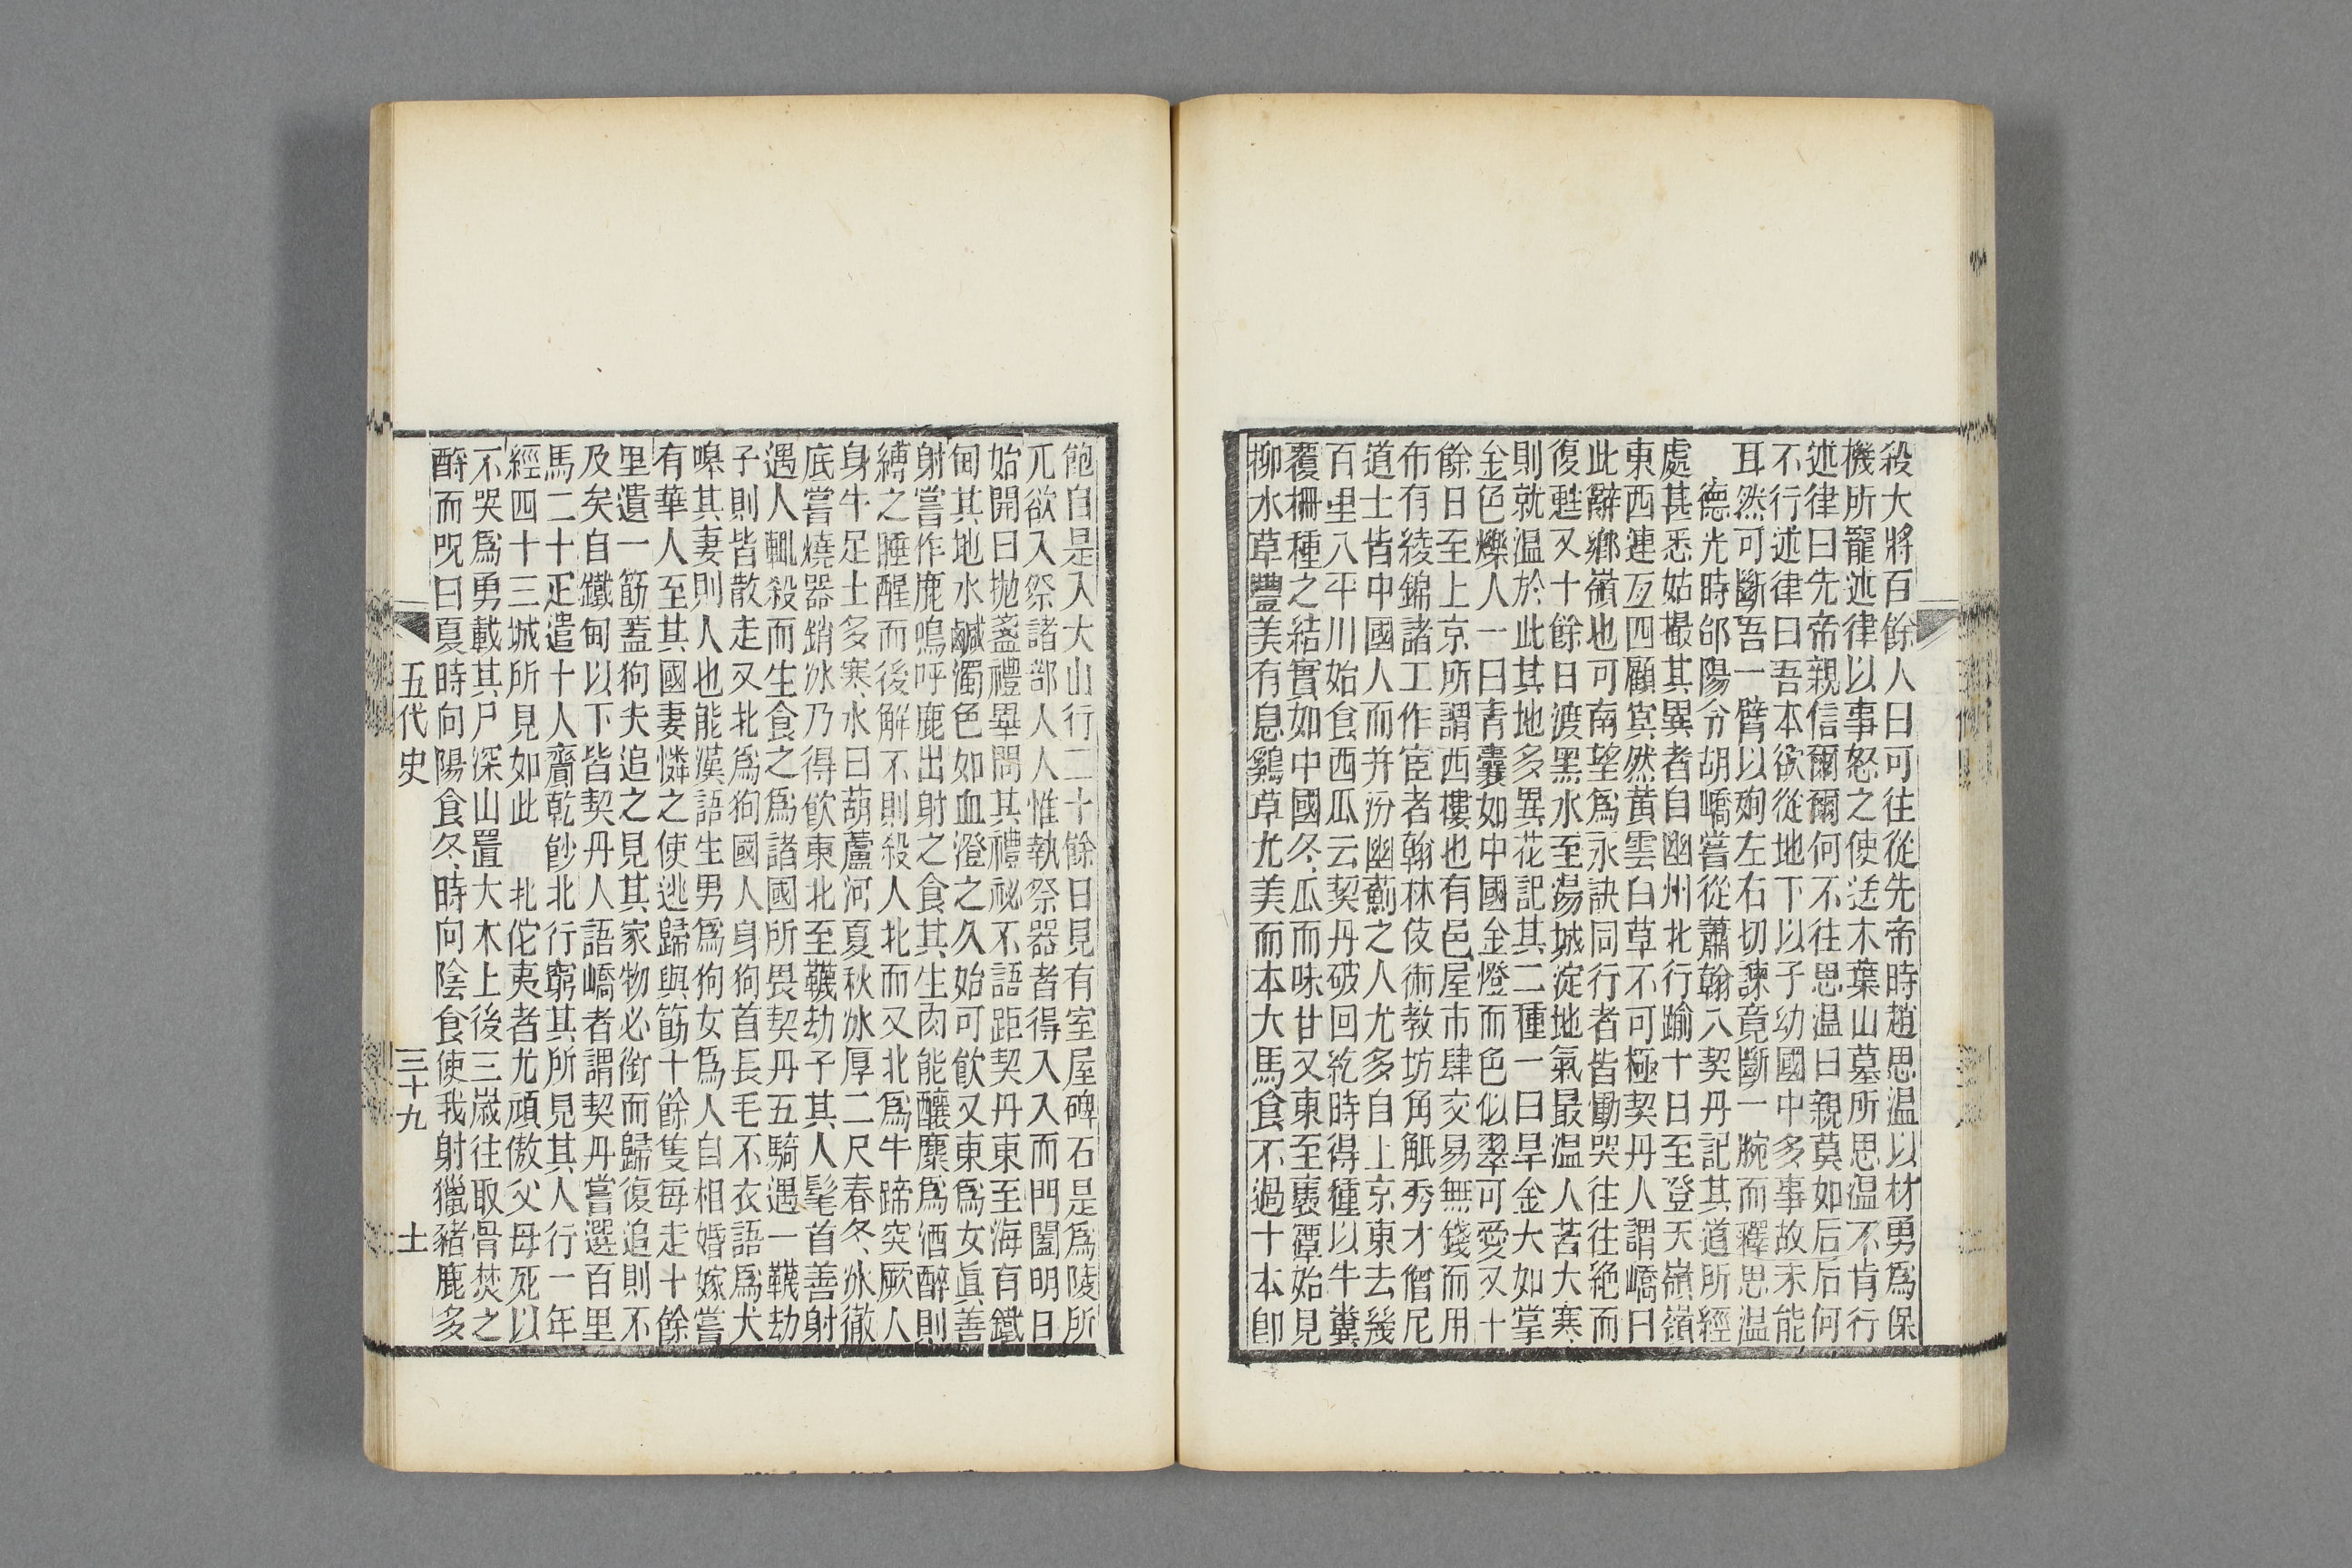 殺大將百餘人曰可往從先帝時趙思温以材勇爲保
機所寵述律以事怒之使送木葉山墓所思温不肯行
述律曰先帝親信爾爾何不往思温曰親莫如后后何
不行述律曰吾本欲從地下以子幼國中多事故未能
耳然可斷吾一臂以殉左右切諫竟斷一腕而釋思温
德光時郃陽令胡嶠嘗從蕭翰入契丹記其道所經
處甚悉姑撮其異者自幽州北行踰十日至登天嶺嶺
東西連亙四顧㝠然黃雲白草不可極契丹人謂嶠曰
此辭鄉嶺也可南望爲永訣同行者皆慟哭往往絶而
復甦又十餘日渡黑水至湯城淀地氣最温人苦大寒
則就温於此其地多異花記其二種一曰旱金大如掌
金色爍人一曰青囊如中國金燈而色似翠可愛又十
餘日至上京所謂西樓也有邑屋市肆交易無錢而用
布有綾錦諸工作宦者翰林伎術教坊角觝秀才僧尼
道士皆中國人而并汾幽薊之人尤多自上京東去幾
百里入平川始食西瓜云契丹破回紇時得種以牛糞
覆柵種之結實如中國冬瓜而味甘又東至褭潭始見
柳水草豐美有息鷄草尤美而本大馬食不過十本卽
飽自是入大山行二十餘日見有室屋碑石是爲陵所
兀欲入祭諸部人人惟執祭器者得入入而門闔明日
始開曰抛盞禮畢問其禮祕不語距契丹東至海有鐵
甸其地水鹹濁色如血澄之久始可飲又東爲女眞善
射嘗作鹿鳴呼鹿出射之食其生肉能釀麋爲酒醉則
縛之睡醒而後解不則殺人北而又北爲牛蹄突厥人
身牛足土多寒水曰葫蘆河夏秋冰厚二尺春冬冰徹
底嘗燒器銷冰乃得飲東北至韈劫子其人髦首善射
遇人輒殺而生食之爲諸國所畏契丹五騎遇一韈劫
子則皆散走又北爲狗國人身狗首長毛不衣語爲犬
嗥其妻則人也能漢語生男爲狗女爲人自相婚嫁嘗
有華人至其國妻憐之使逃歸與筯十餘隻每走十餘
里遺一筯蓋狗夫追之見其家物必銜而歸復追則不
及矣自鐵甸以下皆契丹人語嶠者謂契丹嘗選百里
馬二十疋遣十人齎乾𩜶北行窮其所見其人行一年
經四十三城所見如此　北佗夷者尤頑傲父母死以
不哭爲勇載其尸深山置大木上後三嵗往取骨焚之
酹而呪曰夏時向陽食冬時向陰食使我射獵豬鹿多
五代史　三十九　土